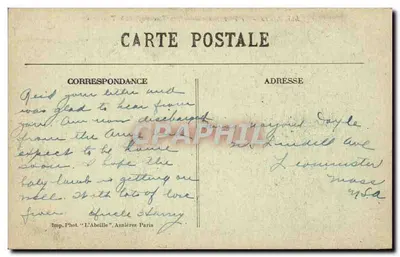 CARTE POSTALE
CORRESPONDANCE
ADRESSE
your letter and
was glad to hear from
you. Am now discharged
from the Army
expect to be home
soon. I hope the
baby lamb is getting on
well. With lots of love
from Uncle Harry
Doyle
Ave
Leominster
Mass
USA
Imp. Phot. "L'Abeille", Asnières Paris